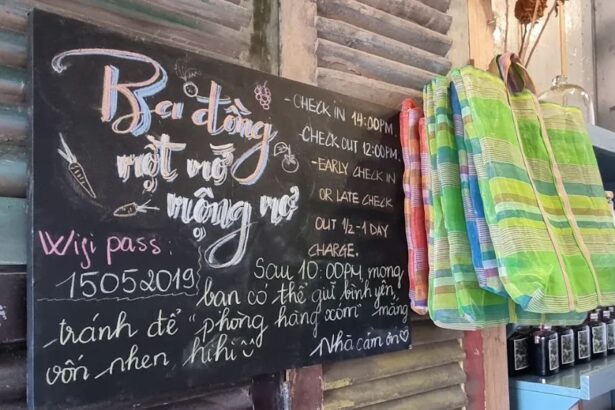 Ba đồng
một mớ
mộng mơ
- CHECK IN 14:00PM.
CHECK OUT 12:00PM.
- EARLY CHECK IN
OR LATE CHECK
OUT 1/2 - 1 DAY
CHARGE.
Wifi pass:
15052019
Sau 10:00PM, mong
bạn có thể giữ bình yên,
tránh để "phòng hàng xóm" mắng
vốn nhen hihi
Nhà cảm ơn